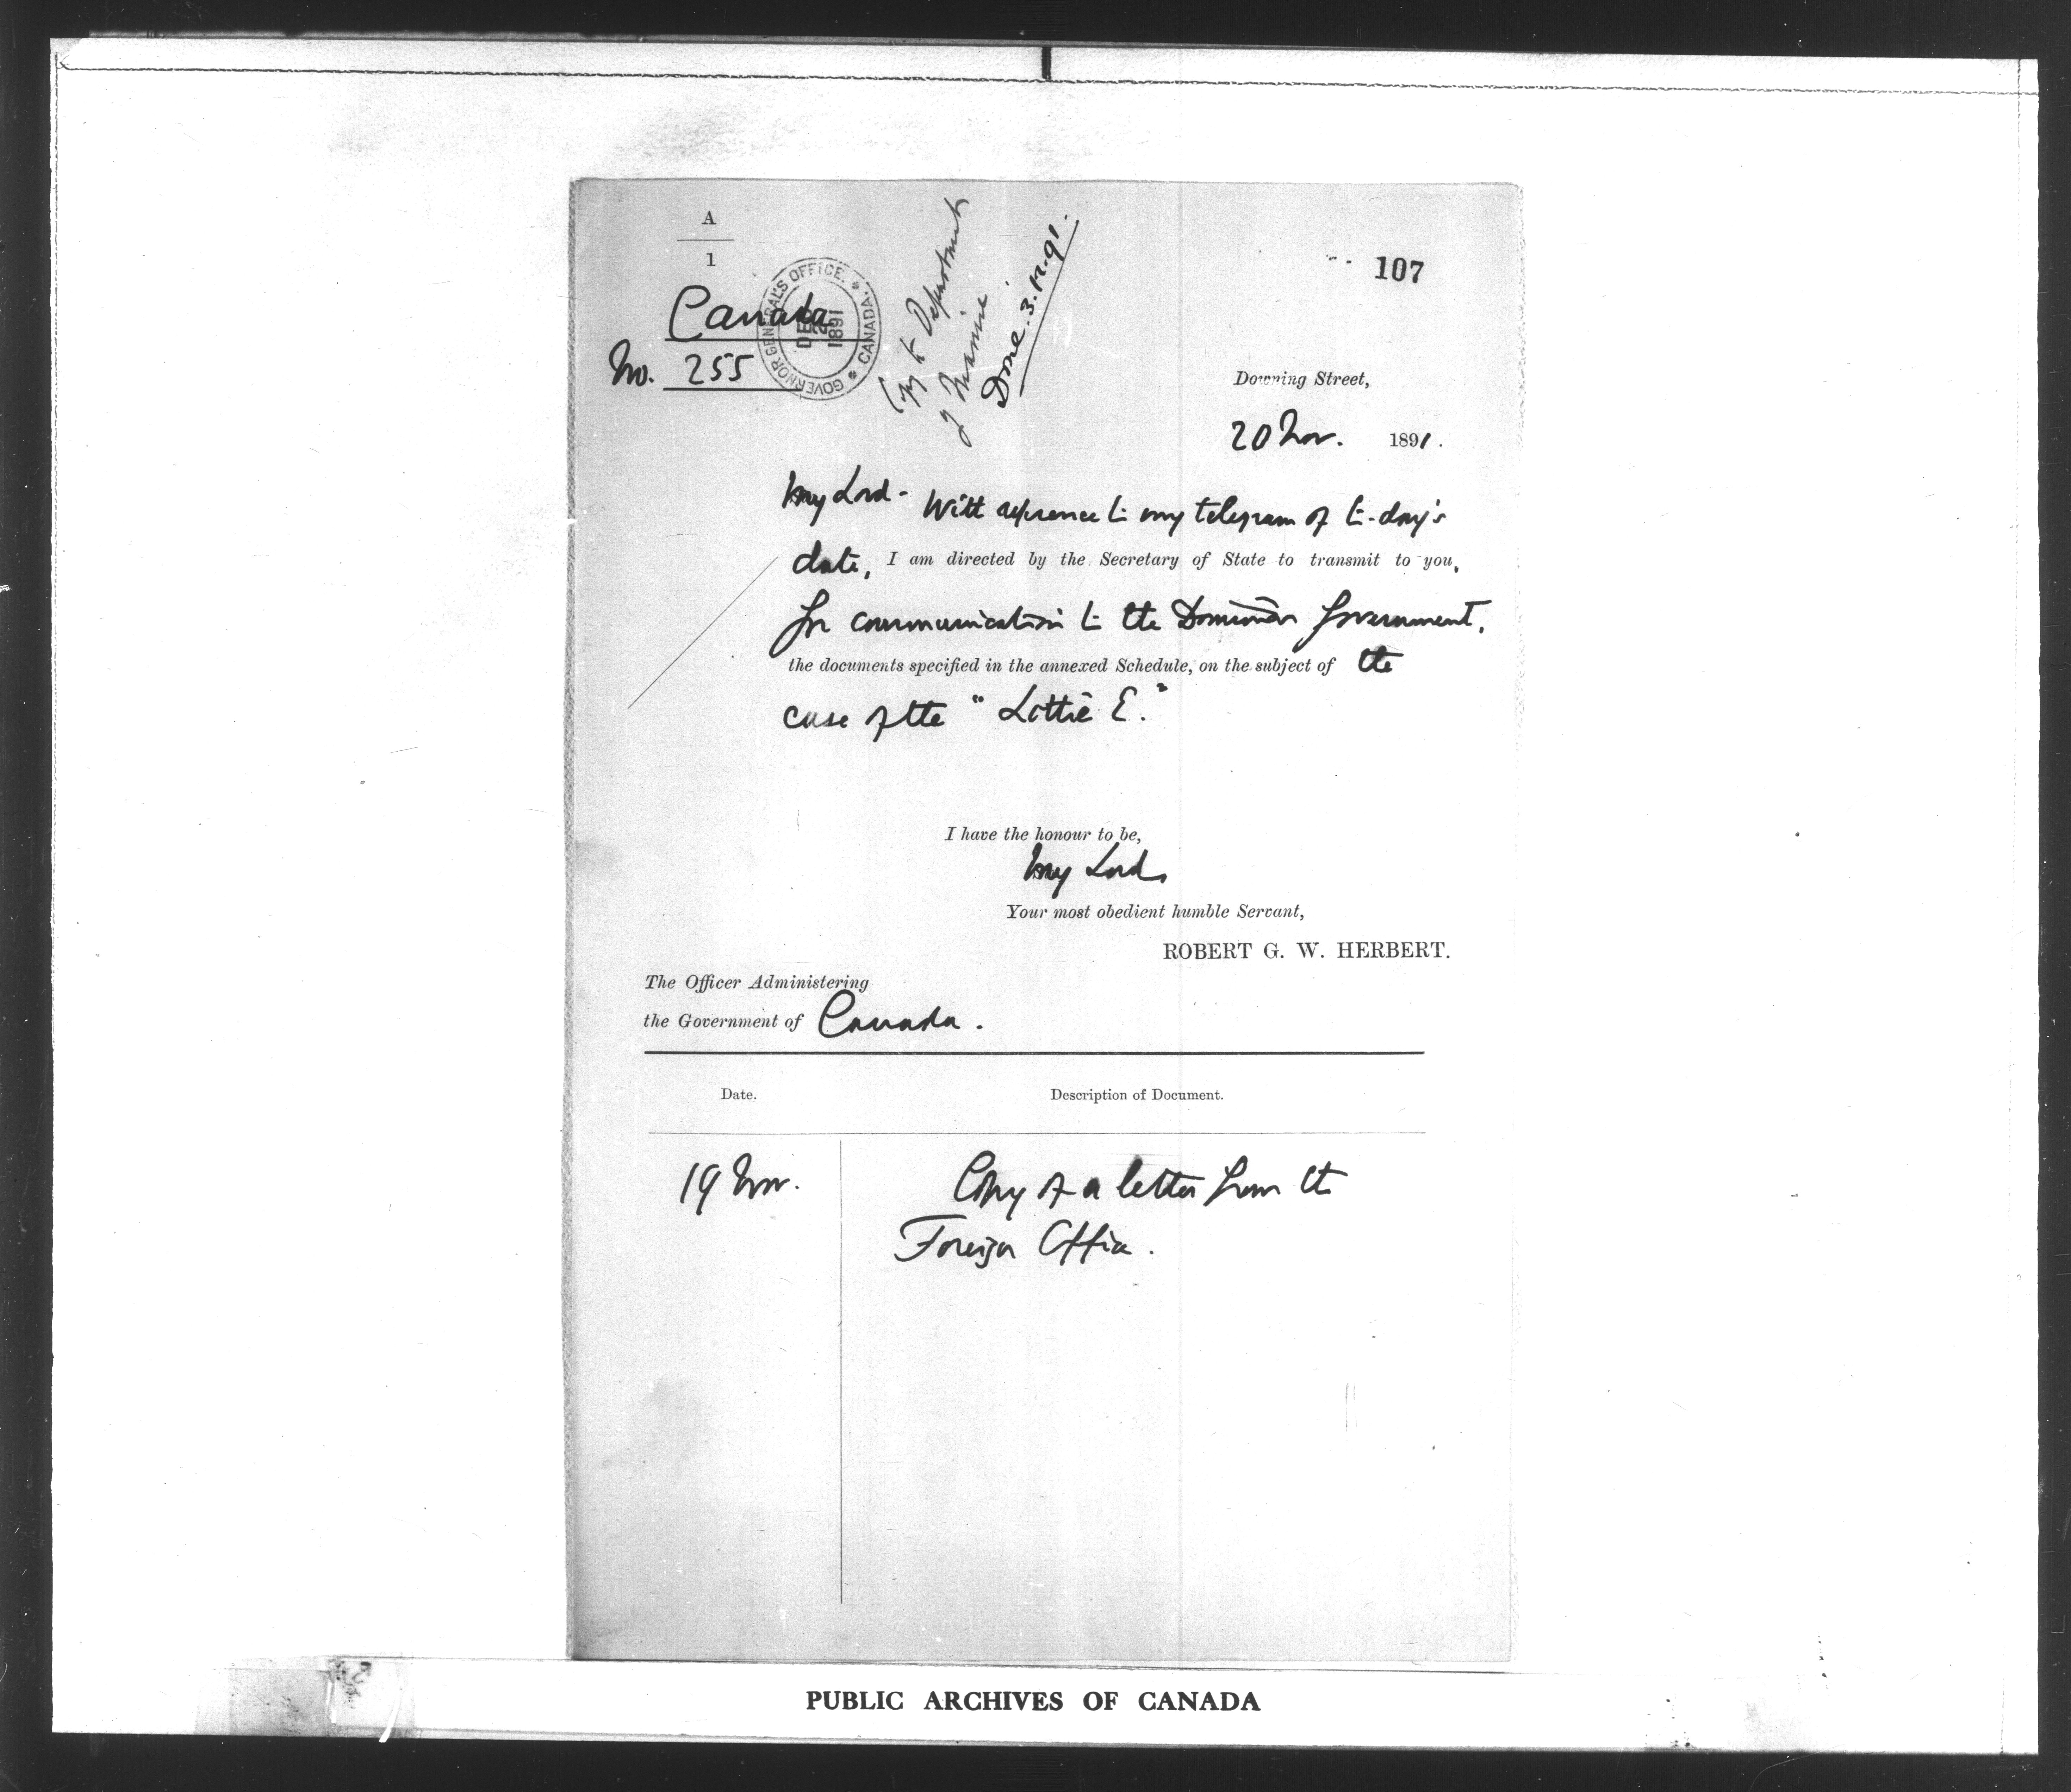 A
1
Canada
No. 255
GOVERNOR GENERAL'S OFFICE. CANADA.
DEC 2 1891
Copy to Department
of Marine.
Done. 3.12.91.
107
Downing Street,
20 Nov. 1891.
My Lord - With reference to my telegram of to-day's
date, I am directed by the Secretary of State to transmit to you,
for communication to the Dominion Government,
the documents specified in the annexed Schedule, on the subject of the
case of the "Lottie E."
I have the honour to be,
My Lord,
Your most obedient humble Servant,
ROBERT G. W. HERBERT.
The Officer Administering
the Government of Canada.
Date. Description of Document.
19 Nov. Copy of a letter from the
Foreign Office.
PUBLIC ARCHIVES OF CANADA